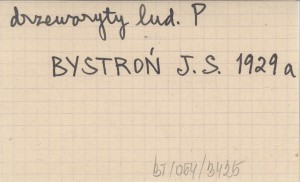 drzeworyty lud. P
BYSTROŃ J.S. 1929a
BJ/064/3435